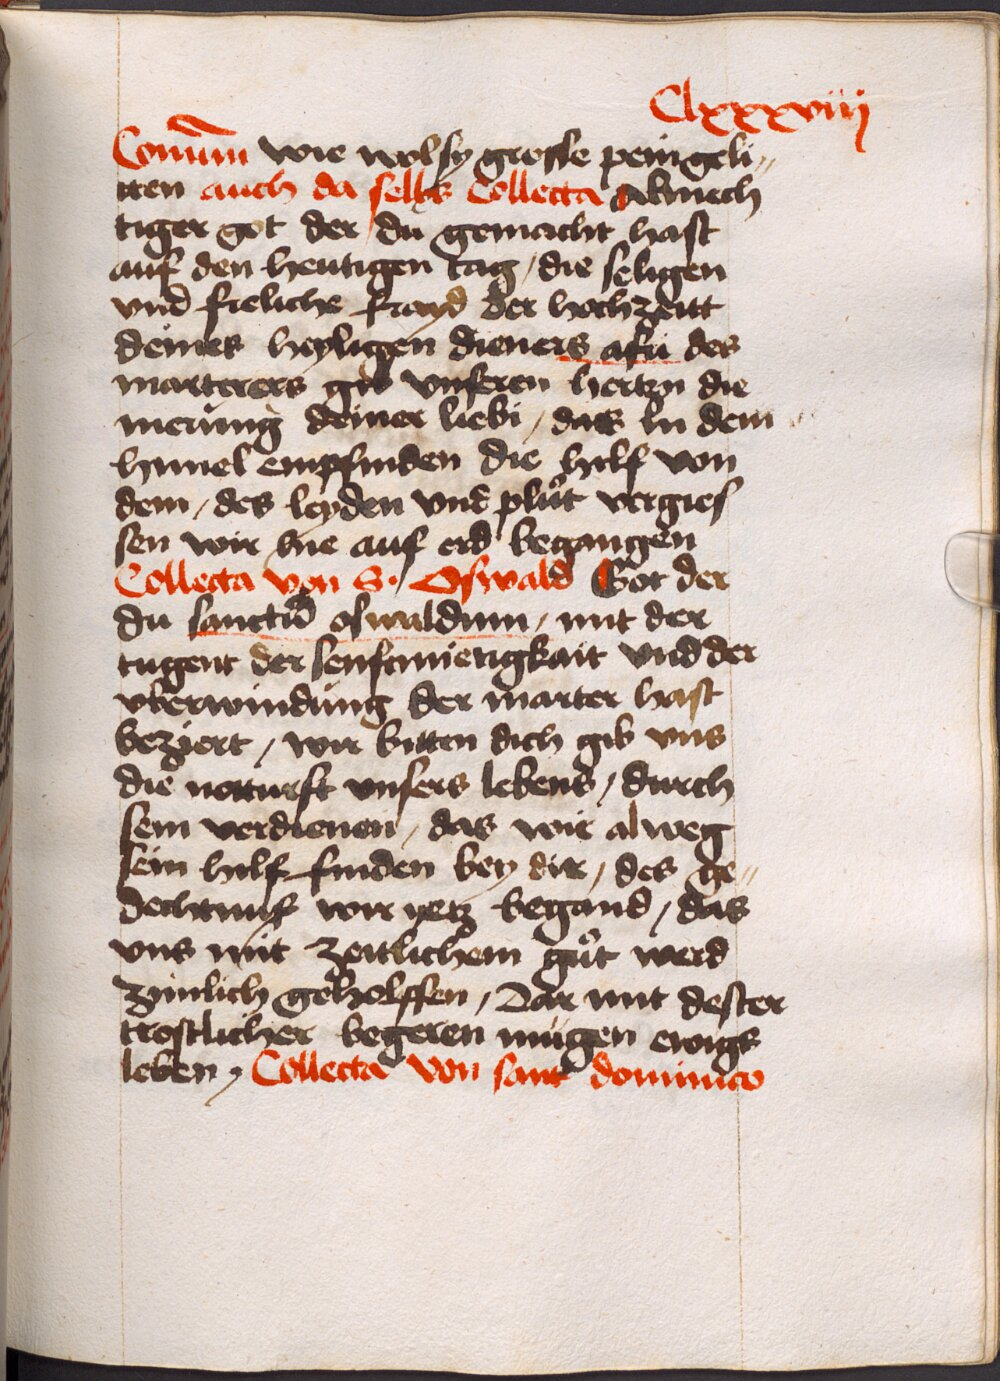 Clxxxviiij
Comūm wie wol sy grosse pein geli„
tten auch da selbs Collecta Almech
tiger got der du gemacht hast
auf den heutigen tag / die seligen
vnd freliche frayd der hochzeitt
deines heyligen dieners afri des
marterers gib vnseren hertzn die
merung deiner liebi / das In dem
himel empfinden die hilf von
dem / des leyden vnd plůt vergies
sen wir hie auf erd begangen
Collecta von S. Oswald Got der
du sanctū oswaldum / mit der
tugent der senftmietigkait vnd der
vberwindung der marter hast
beziert / wir bitten dich gib vns
die notturft vnsers lebens / durch
sein verdienen / das wir alweg
sein hilf finden bey dir / des ge„
dechtnus wir yetz begand / das
vns mit zeitlichem gůt werd
zimlich geholffen / Dar mit dester
trostlicher begeren mügen ewigs
leben / Collecta von sant dominico